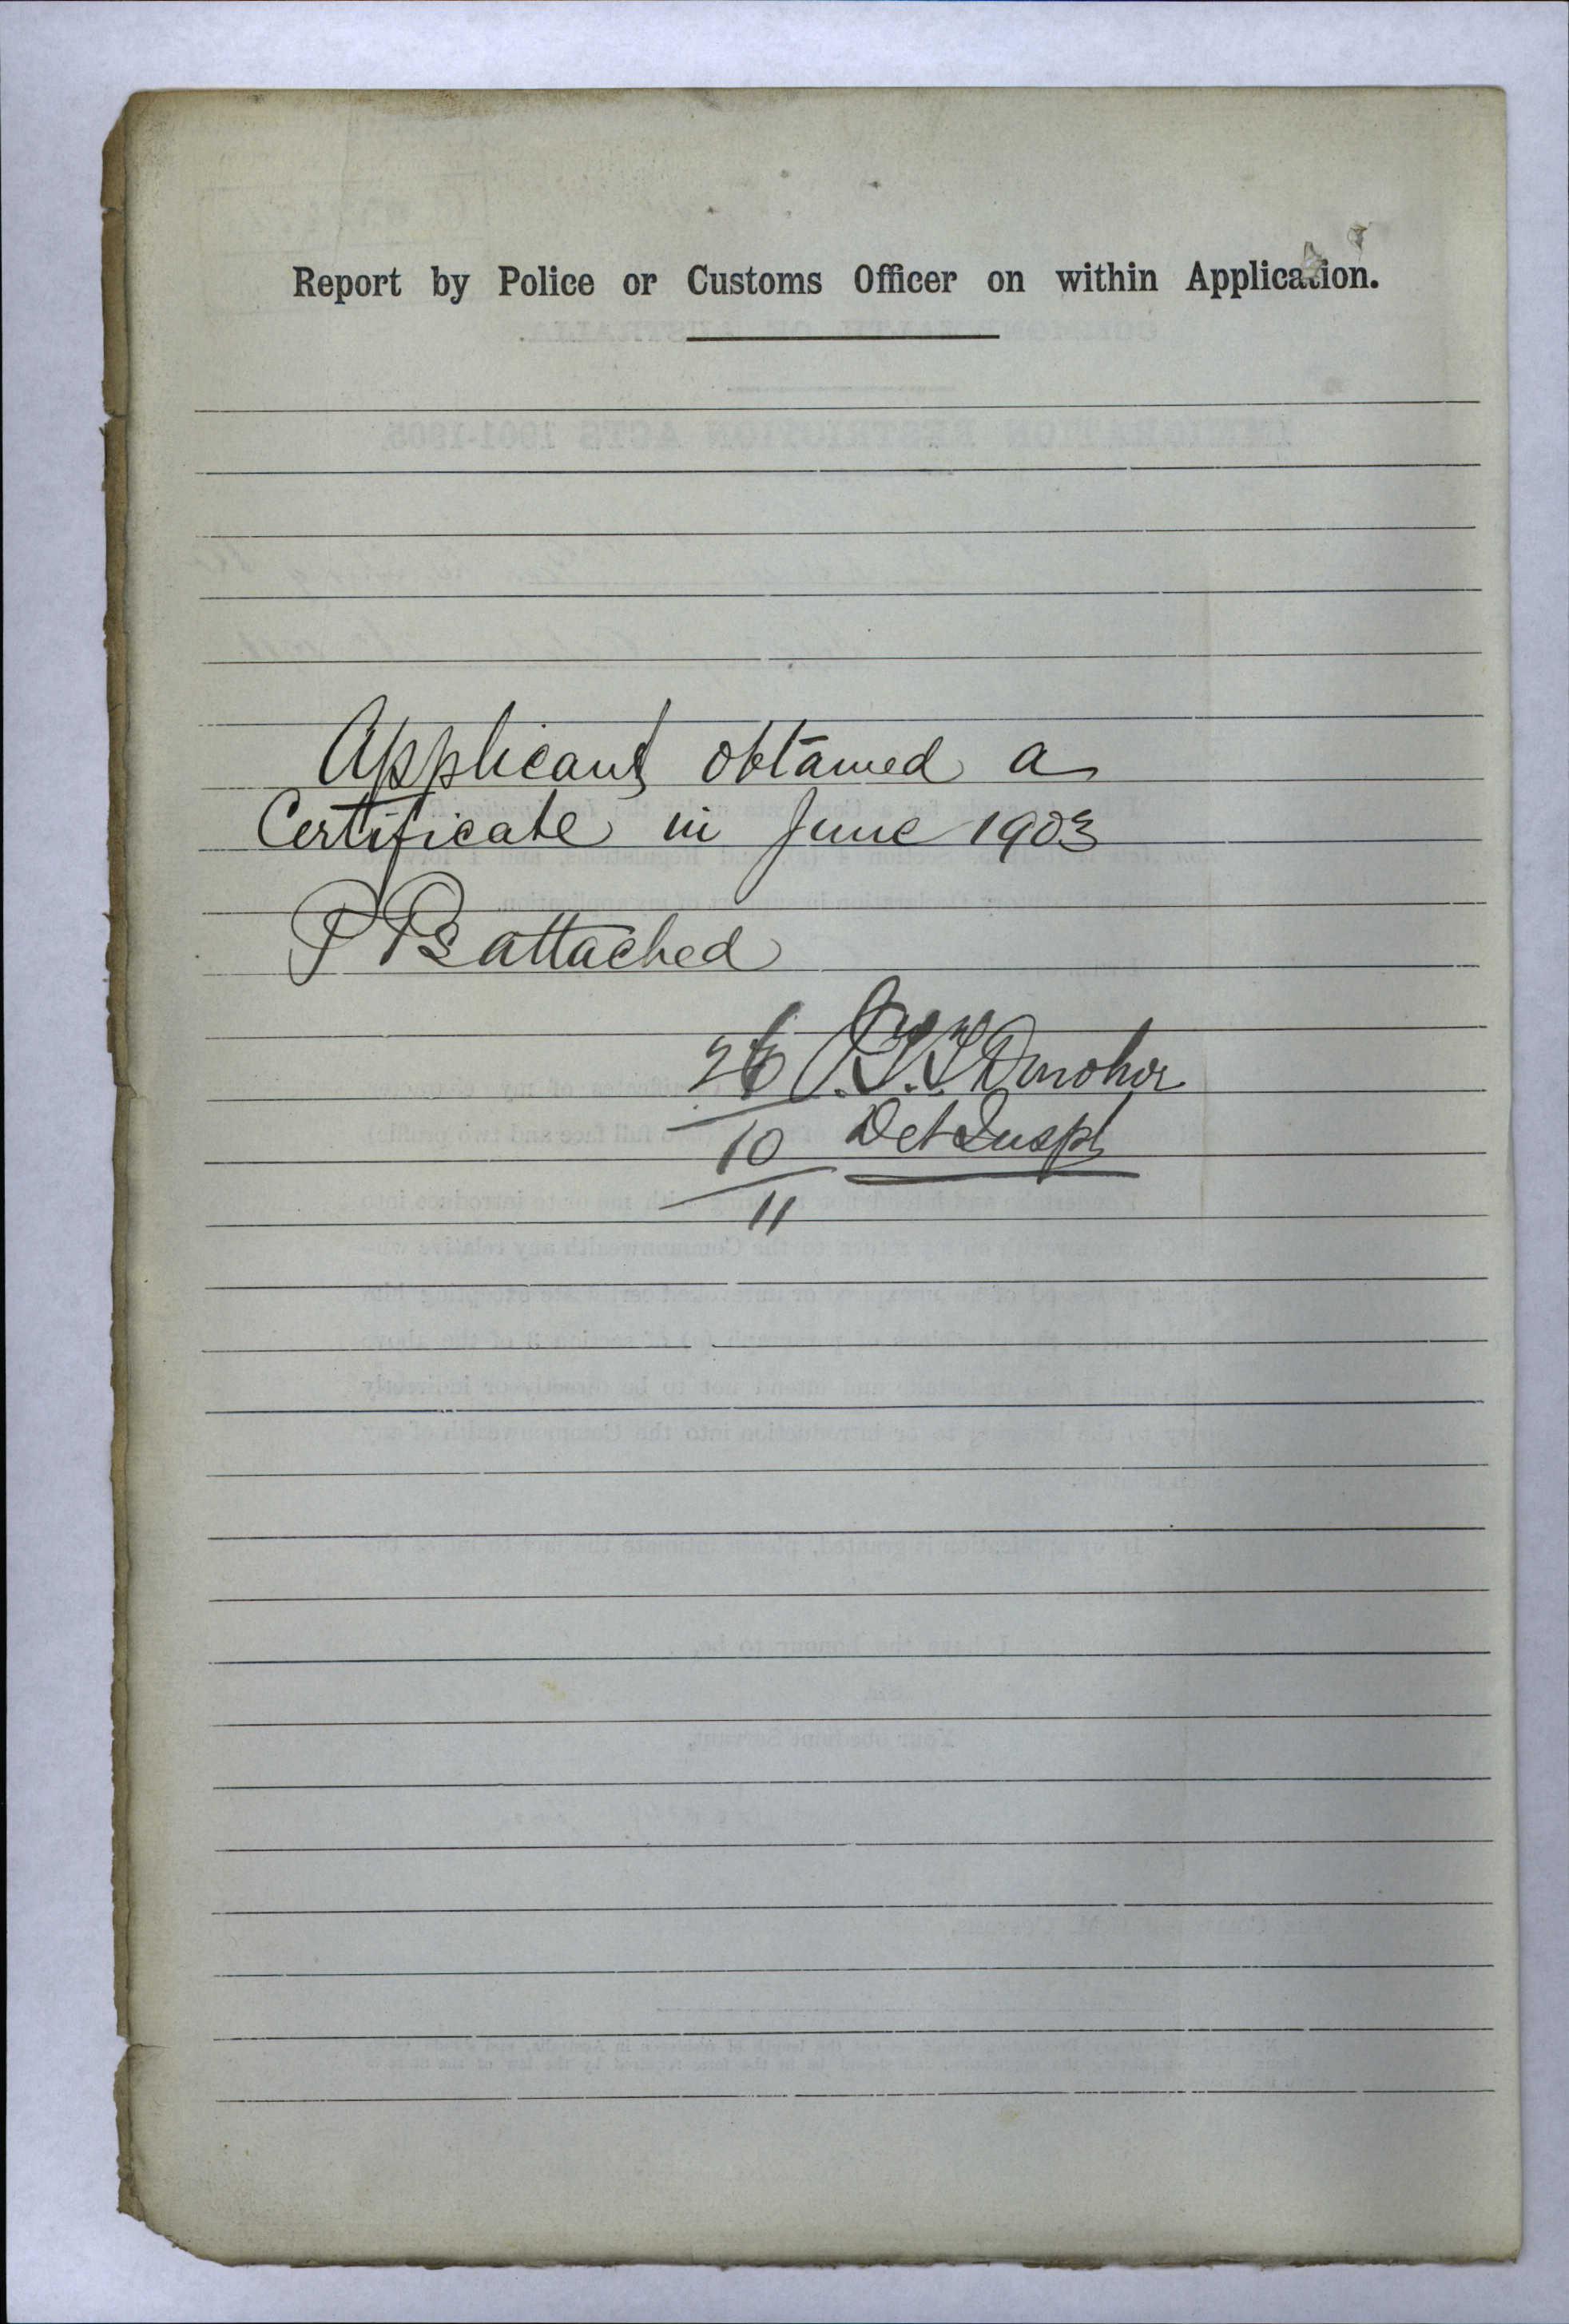 Report by Police or Customs Officer on within Application.
Applicant obtained a
Certificate in June 1903
P Ps attached
26 Donohoe
10 Det Inspr
11